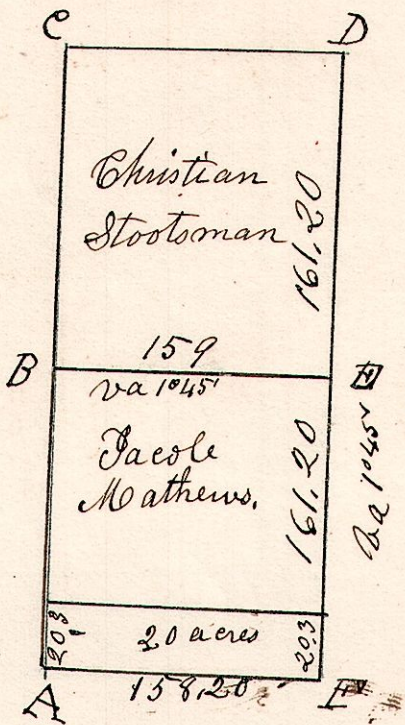 C D
Christian
Stootsman
161,20
159
B
va 1°45'
Jacob
Mathews.
161.20
va 1°45'
20,3
20 acres
20,3
A
158,20